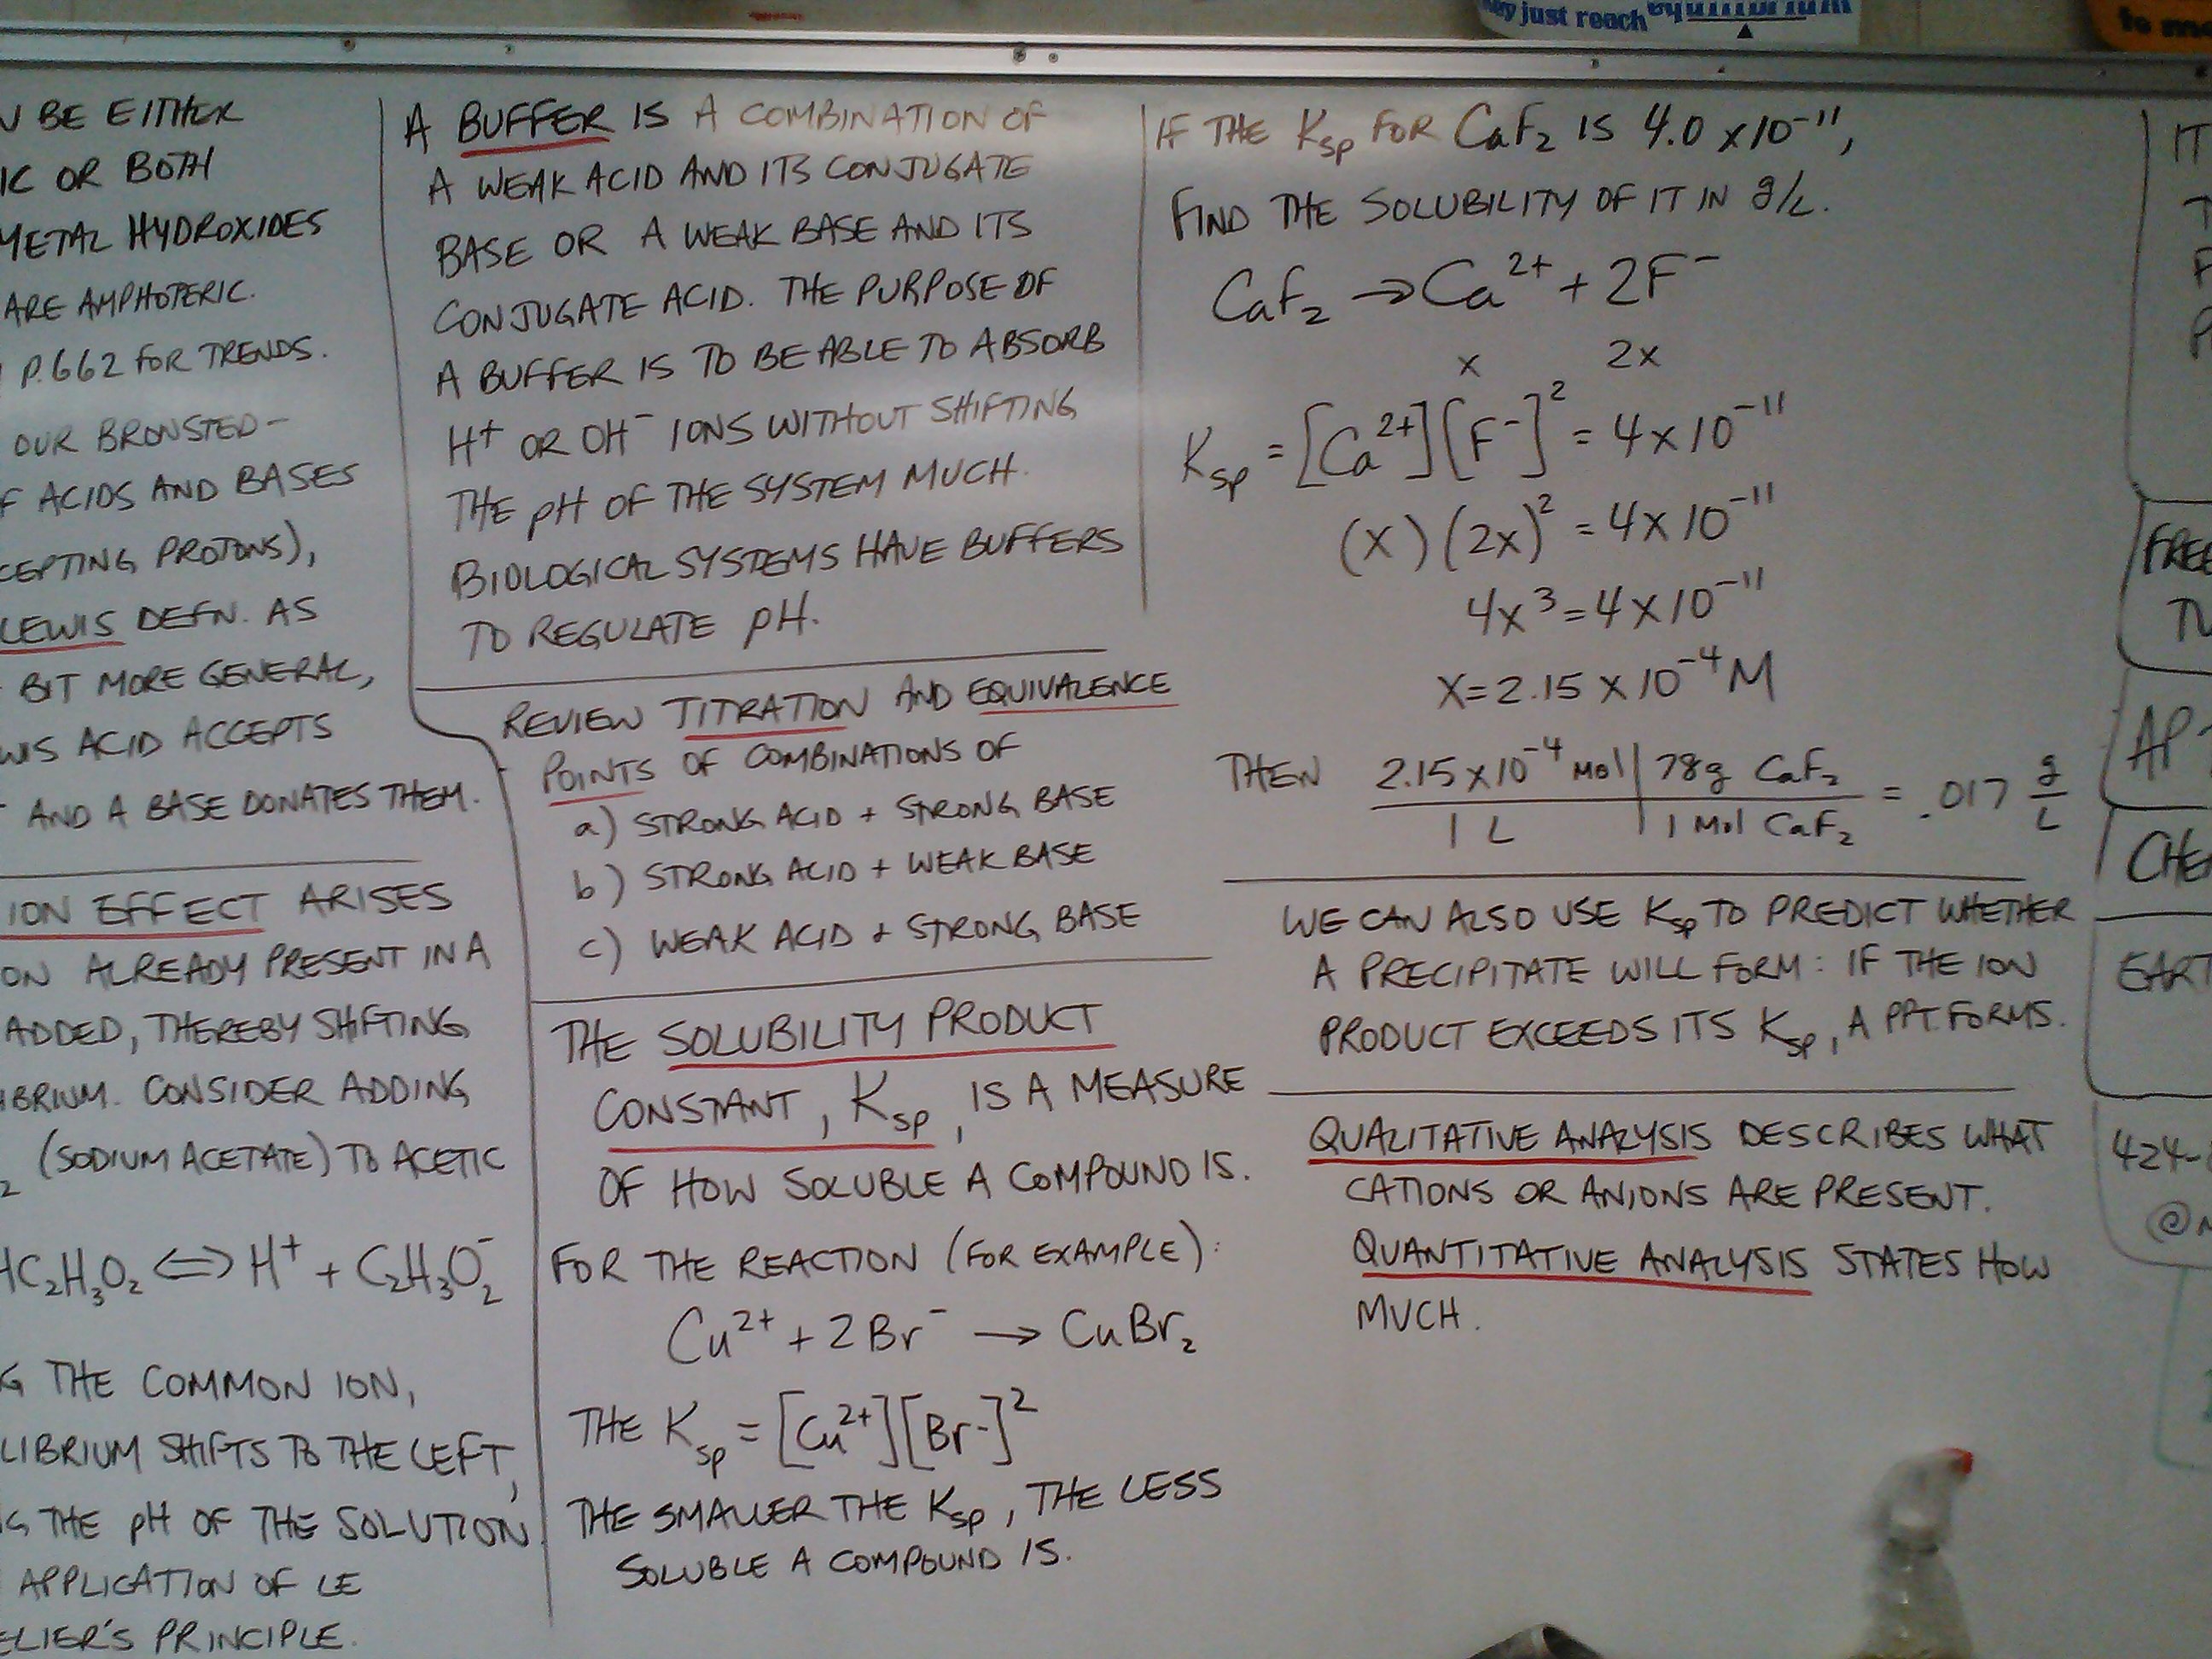 y just reach equilibrium
to mo
BE EITHER
IC OR BOTH
METAL HYDROXIDES
ARE AMPHOTERIC.
P.662 FOR TRENDS.
OUR BRONSTED-
F ACIDS AND BASES
CEPTING PROTONS),
LEWIS DEFN. AS
BIT MORE GENERAL,
WIS ACID ACCEPTS
AND A BASE DONATES THEM.
ION EFFECT ARISES
ON ALREADY PRESENT IN A
ADDED, THEREBY SHIFTING
IBRIUM. CONSIDER ADDING
2 (SODIUM ACETATE) TO ACETIC
HC₂H₃O₂ ⇔ H⁺ + C₂H₃O₂⁻
G THE COMMON ION,
LIBRIUM SHIFTS TO THE LEFT,
G THE pH OF THE SOLUTION.
APPLICATION OF LE
ELIER'S PRINCIPLE.
A BUFFER IS A COMBINATION OF
A WEAK ACID AND ITS CONJUGATE
BASE OR A WEAK BASE AND ITS
CONJUGATE ACID. THE PURPOSE OF
A BUFFER IS TO BE ABLE TO ABSORB
H⁺ OR OH⁻ IONS WITHOUT SHIFTING
THE pH OF THE SYSTEM MUCH.
BIOLOGICAL SYSTEMS HAVE BUFFERS
TO REGULATE pH.
REVIEW TITRATION AND EQUIVALENCE
POINTS OF COMBINATIONS OF
a) STRONG ACID + STRONG BASE
b) STRONG ACID + WEAK BASE
c) WEAK ACID + STRONG BASE
THE SOLUBILITY PRODUCT
CONSTANT, Ksp, IS A MEASURE
OF HOW SOLUBLE A COMPOUND IS.
FOR THE REACTION (FOR EXAMPLE):
Cu²⁺ + 2Br⁻ → CuBr₂
THE Ksp = [Cu²⁺][Br⁻]²
THE SMALLER THE Ksp, THE LESS
SOLUBLE A COMPOUND IS.
IF THE Ksp FOR CaF₂ IS 4.0 x10⁻¹¹,
FIND THE SOLUBILITY OF IT IN g/L.
CaF₂ → Ca²⁺ + 2F⁻
x 2x
Ksp = [Ca²⁺][F⁻]² = 4x10⁻¹¹
(x)(2x)² = 4x10⁻¹¹
4x³ = 4x10⁻¹¹
X = 2.15 x10⁻⁴ M
THEN 2.15x10⁻⁴ mol | 78g CaF₂ = .017 g
1 L | 1 mol CaF₂ L
WE CAN ALSO USE Ksp TO PREDICT WHETHER
A PRECIPITATE WILL FORM: IF THE ION
PRODUCT EXCEEDS ITS Ksp, A PPT. FORMS.
QUALITATIVE ANALYSIS DESCRIBES WHAT
CATIONS OR ANIONS ARE PRESENT.
QUANTITATIVE ANALYSIS STATES HOW
MUCH.
IT
FREE
TU
AP
CHE
EART
424-
@